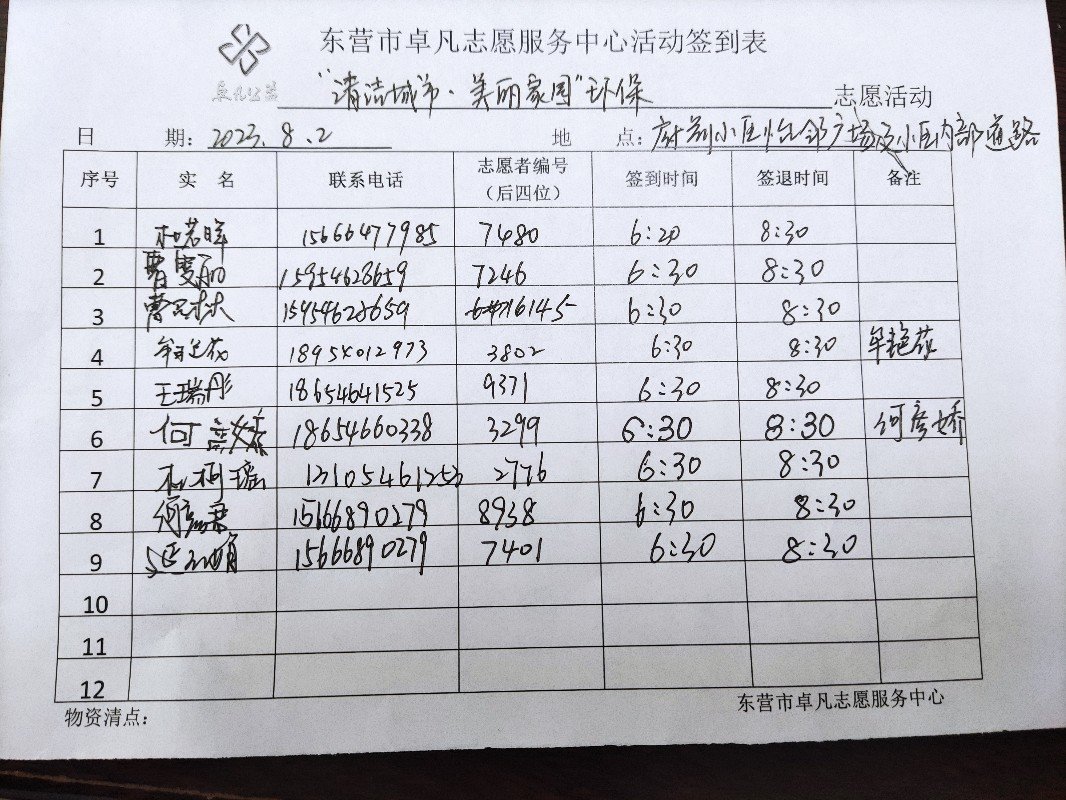 卓凡公益
东营市卓凡志愿服务中心活动签到表
"清洁城市·美丽家园"环保 志愿活动
日 期: 2023.8.2 地 点: 府前小区怡邻广场及小区内部道路
序号 实 名 联系电话 志愿者编号（后四位） 签到时间 签退时间 备注
1 杜若晖 15666477985 7480 6:20 8:30
2 曹雯 15954628659 7246 6:30 8:30
3 曹 15954628659 6145 6:30 8:30
4 牟艳花 18954012973 3802 6:30 8:30 牟艳花
5 王瑞彤 18654641525 9371 6:30 8:30
6 何彦娇 18654660338 3299 6:30 8:30 何彦娇
7 杜柯瑶 13105461253 2776 6:30 8:30
8 何 15666890279 8938 6:30 8:30
9 延 娟 15666890279 7401 6:30 8:30
10
11
12
物资清点:
东营市卓凡志愿服务中心